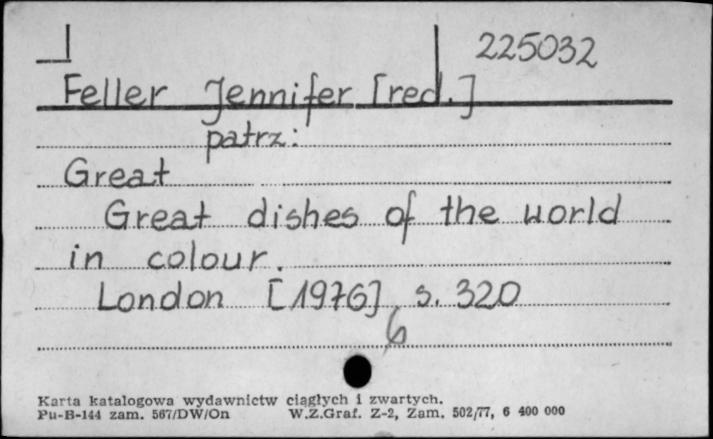 225032
Feller Jennifer [red.]
patrz:
Great
Great dishes of the world
in colour.
London [1976] s. 320
6
Karta katalogowa wydawnictw ciągłych i zwartych.
Pu-B-144 zam. 567/DW/On W.Z.Graf. Z-2, Zam. 502/77, 6 400 000